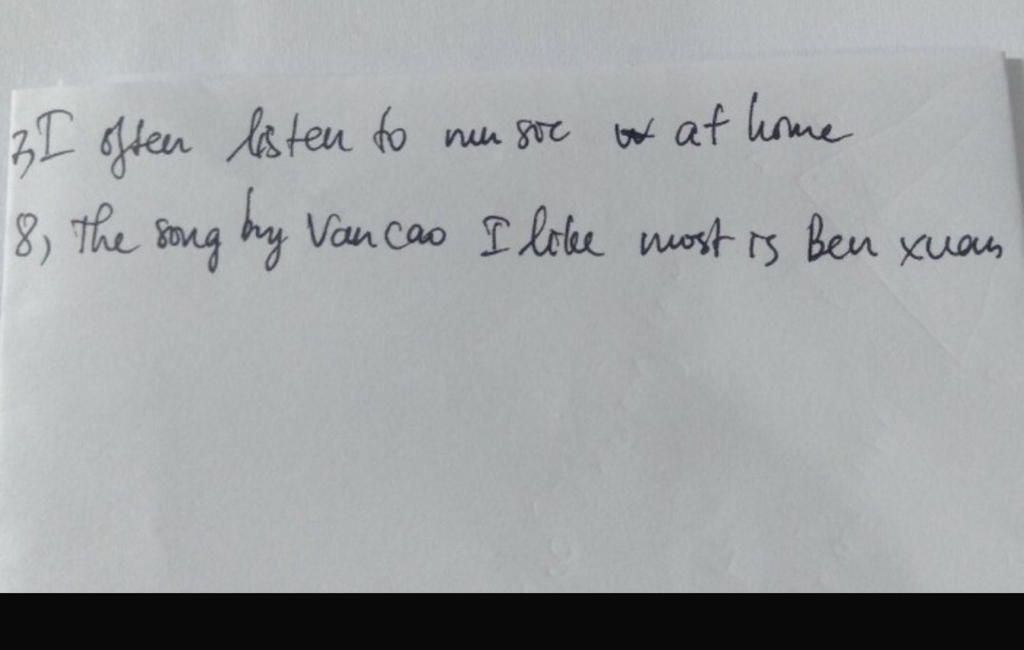 3, I often listen to music at home
8, the song by Van cao I like most is Ben xuan